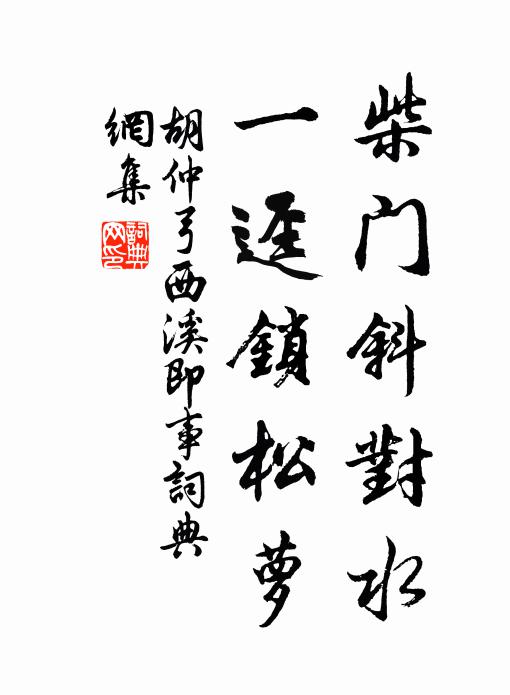 柴门斜對水
一逕鎖松萝
胡仲弓西溪即事詞典
網集
詞典
网印